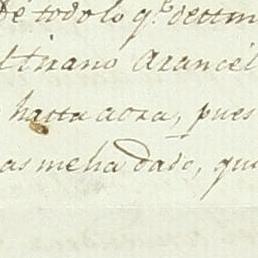 de todo lo q.e dettm
el tirano Arancel
hatta aora, pues
as me ha dado, que